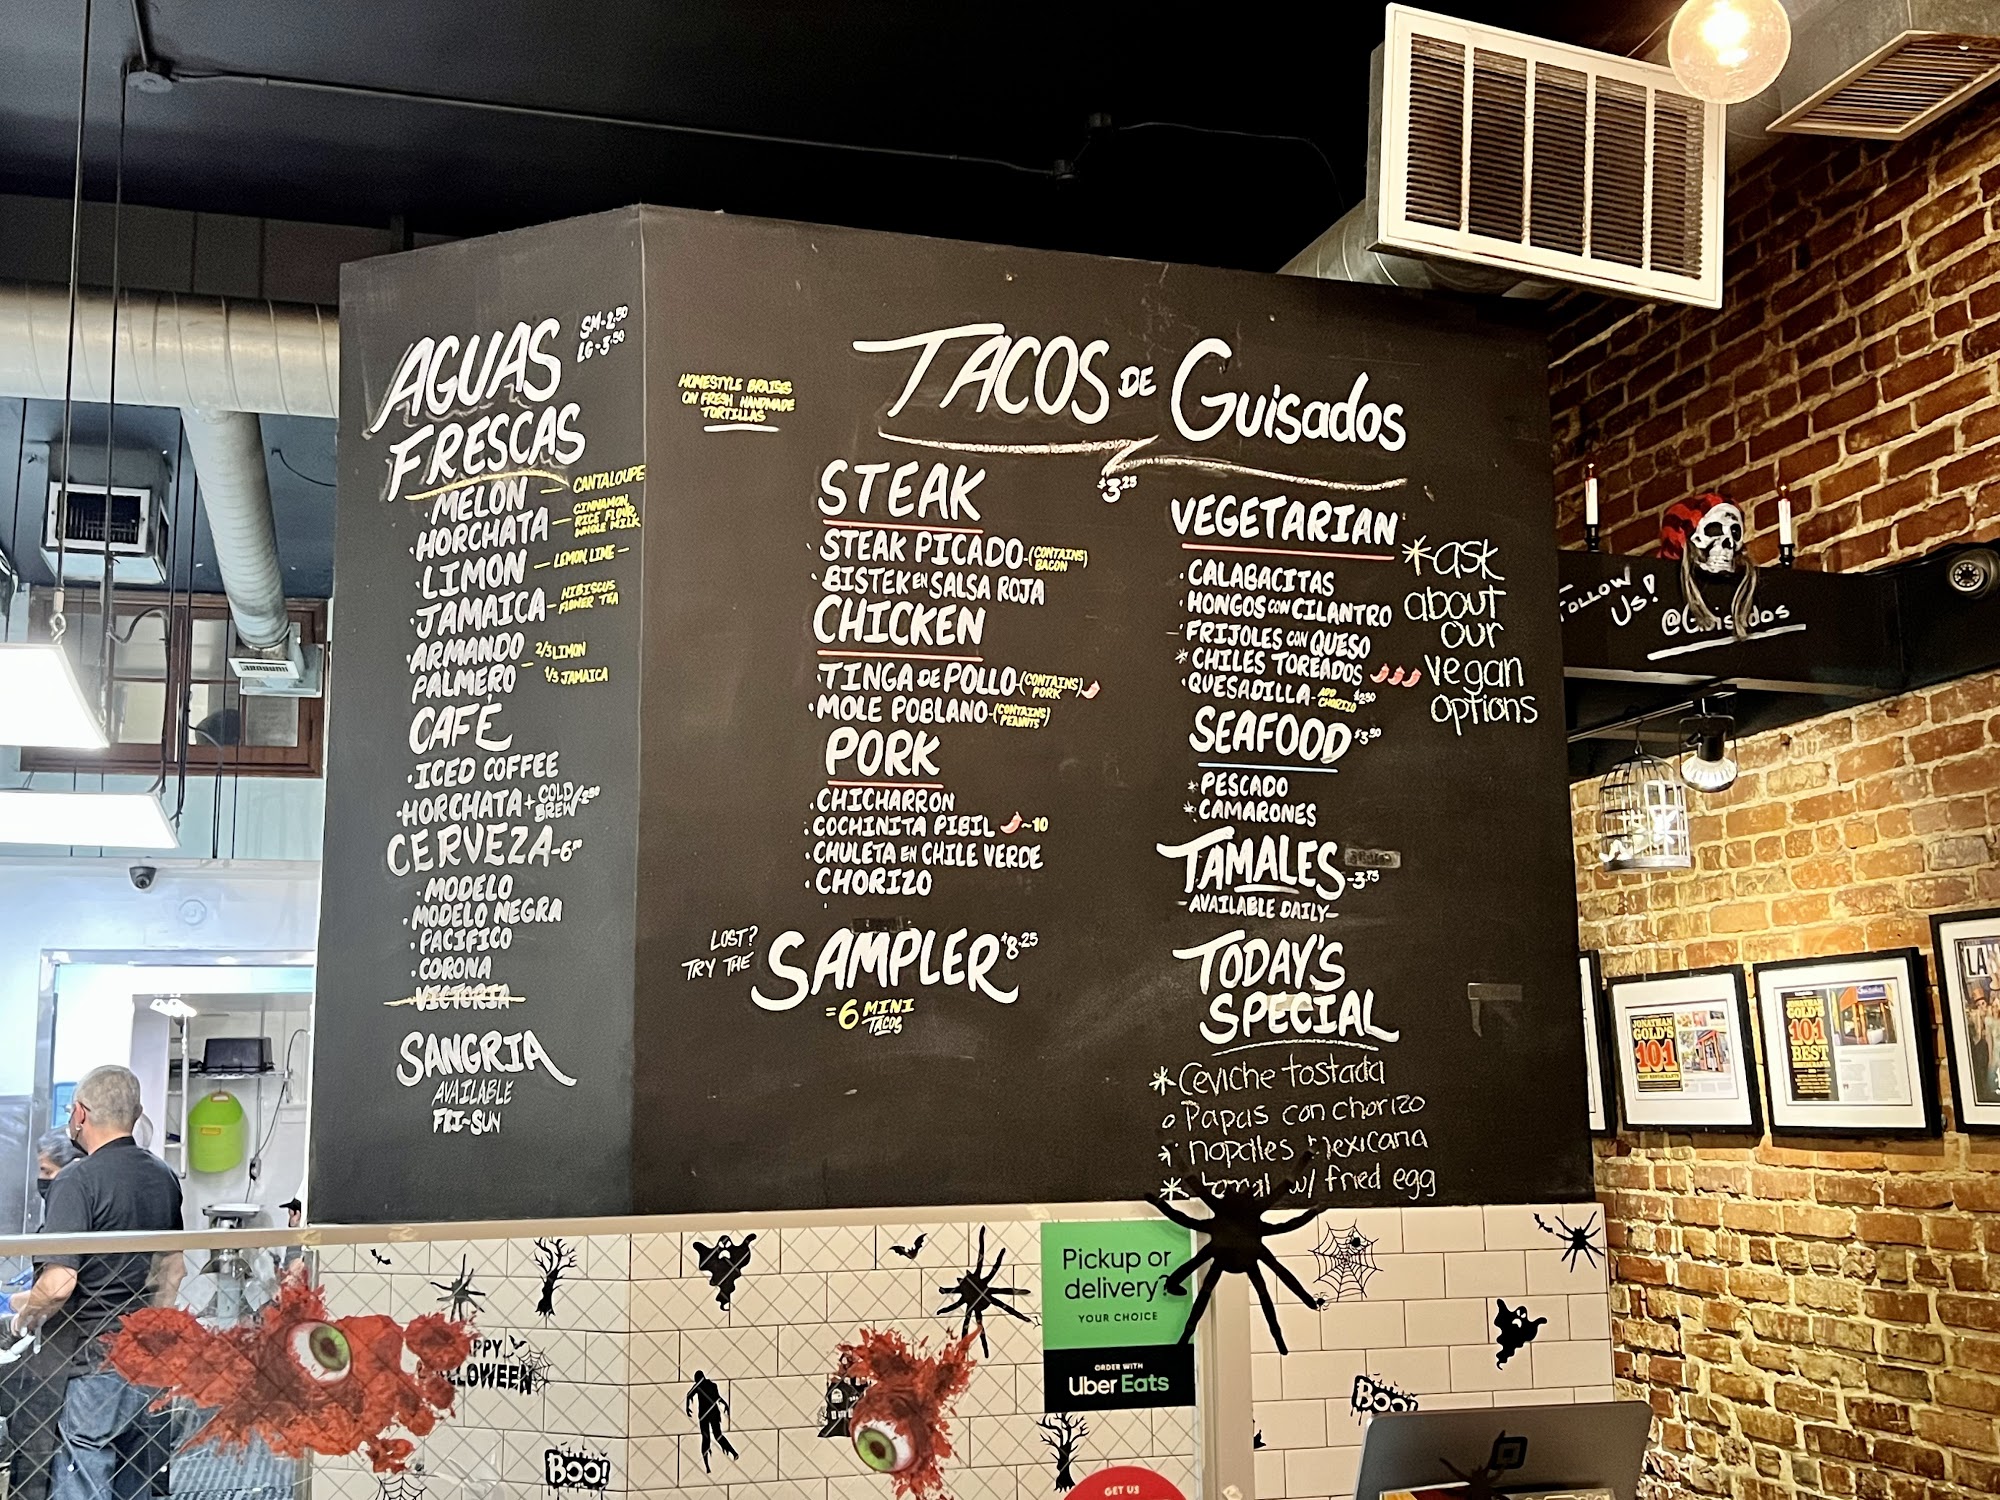 AGUAS
FRESCAS
SM-2.50
LG-3.50
· MELON — CANTALOUPE
· HORCHATA — CINNAMON,
RICE FLOUR,
WHOLE MILK
· LIMON — LEMON, LIME —
· JAMAICA — HIBISCUS
FLOWER TEA
· ARMANDO
PALMERO
— 2/3 LIMON
1/3 JAMAICA
CAFE
· ICED COFFEE
· HORCHATA + COLD
BREW
CERVEZA-6
· MODELO
· MODELO NEGRA
· PACIFICO
· CORONA
VICTORIA
SANGRIA
AVAILABLE
FRI~SUN
HOMESTYLE BRAISES
ON FRESH HANDMADE
TORTILLAS
TACOS DE GUISADOS
$3.25
STEAK
· STEAK PICADO-(CONTAINS)
BACON
· BISTEK EN SALSA ROJA
CHICKEN
· TINGA DE POLLO-(CONTAINS)
PORK
· MOLE POBLANO-(CONTAINS)
PEANUTS
PORK
· CHICHARRON
· COCHINITA PIBIL ~10
· CHULETA EN CHILE VERDE
· CHORIZO
LOST?
TRY THE
SAMPLER $8.25
= 6 MINI
TACOS
VEGETARIAN
· CALABACITAS
· HONGOS CON CILANTRO
- FRIJOLES CON QUESO
* CHILES TOREADOS
· QUESADILLA - ADD
CHORIZO
*ask
about
our
vegan
options
SEAFOOD $3.50
* PESCADO
* CAMARONES
TAMALES-3.75
-AVAILABLE DAILY-
TODAY'S
SPECIAL
* Ceviche tostada
o Papas con chorizo
* nopales Mexicana
* w/ fried egg
FOLLOW
US!
@Guisados
JONATHAN
GOLD'S
101
JONATHAN
GOLD'S
101
BEST
LA
HAPPY
HALLOWEEN
BOO!
BOO!
Pickup or
delivery?
YOUR CHOICE
ORDER WITH
Uber Eats
GET US